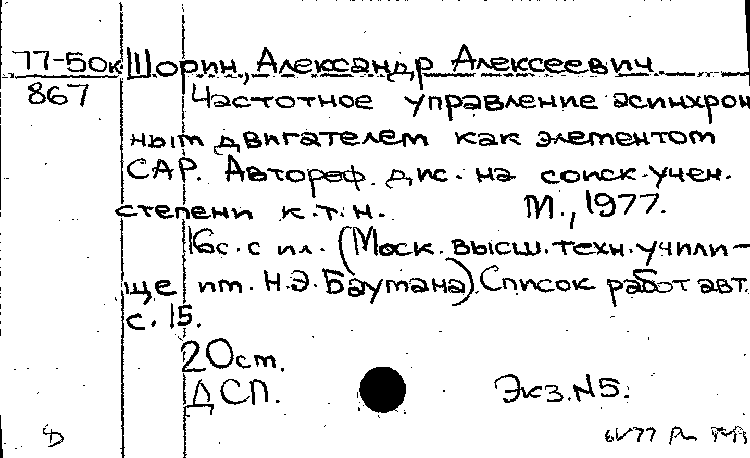 77-50к Шорин, Александр Алексеевич.
867 Частотное управление асинхрон
ным двигателем как элементом
САР. Автореф. дис. на соиск. учен.
степени к.т.н. М., 1977.
16с. с ил. (Моск. высш. техн. учили-
ще им. Н.Э. Баумана). Список работ авт.
с. 15.
20 см.
ДСП. Экз. N5.